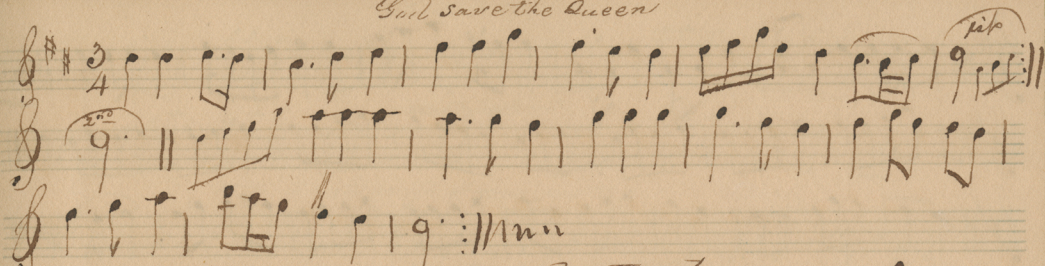 God save the Queen
3
4
1st
2nd